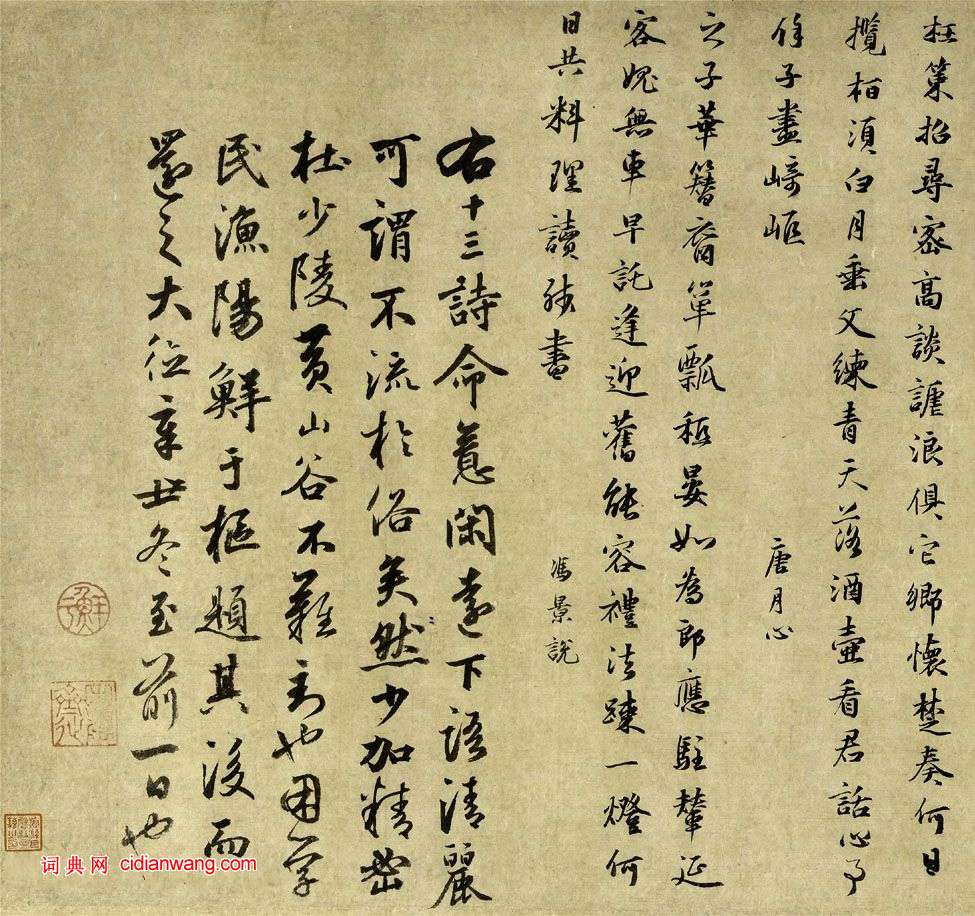 枉策招尋密高談謔浪俱它鄉懷楚奏何日
攬柏須白月垂文練青天落酒壺看君話心事
餘子盡崎嶇
唐月心
之子華簪裔簞瓢秖晏如為郎應駐輦延
客媿無車早託逢迎舊能容禮法踈一燈何
日共料理讀殘書
馮景說
右十三詩命意閑遠下語清麗
可謂不流於俗矣然少加精密
杜少陵黃山谷不難到也困學
民漁陽鮮于樞題其後而
還之大德辛丑冬至前一日也
词典网 cidianwang.com